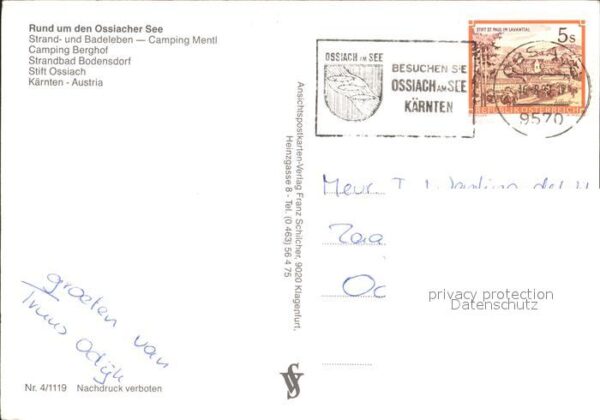 Rund um den Ossiacher See
Strand- und Badeleben — Camping Mentl
Camping Berghof
Strandbad Bodensdorf
Stift Ossiach
Kärnten - Austria
OSSIACH AM SEE
BESUCHEN SIE
OSSIACH AM SEE
KÄRNTEN
STIFT ST. PAUL IM LAVANTTAL
5s
REPUBLIK ÖSTERREICH
9570
Ansichtspostkarten-Verlag Franz Schilcher, 9020 Klagenfurt,
Heinzgasse 8 - Tel. (0 463) 56 4 75
privacy protection
Datenschutz
groeten van
Truus Odijk
Nr. 4/1119 Nachdruck verboten